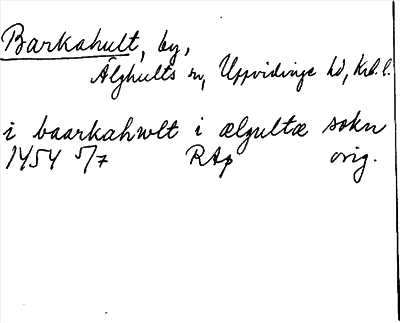 Barkahult, by,
Älghults sn, Uppvidinge hd, Kro. l.
i baarkahwlt i ælgultæ sokn
1454 5/7 RAp orig.